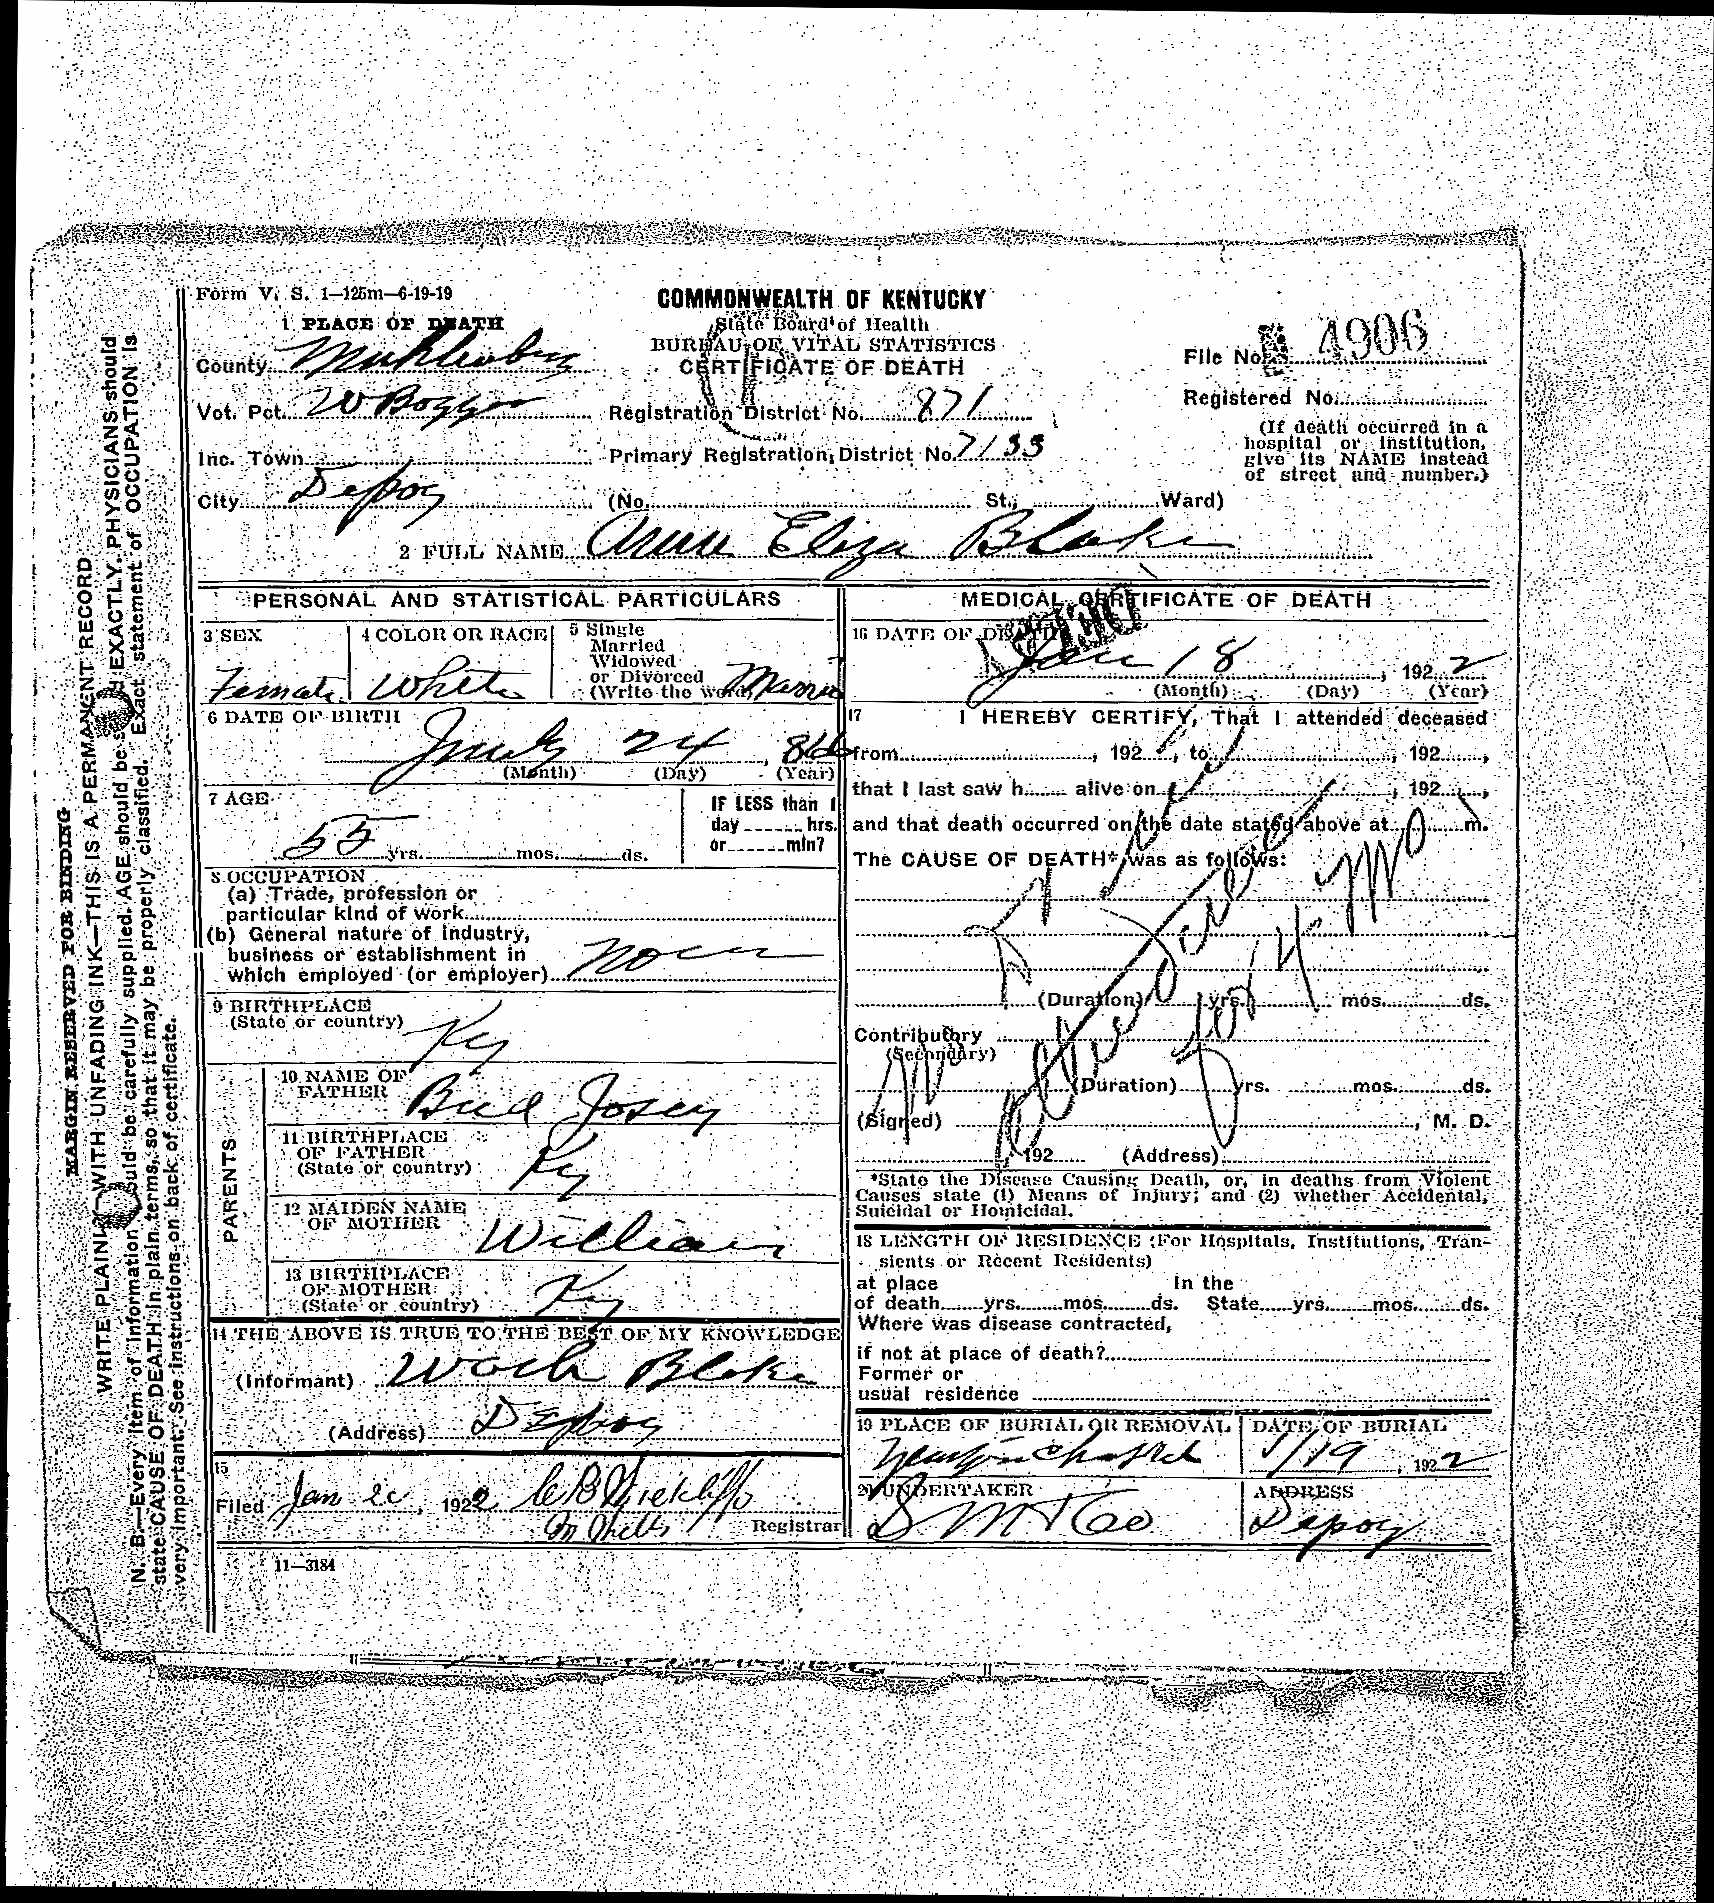 Form V. S. 1—125m—6-19-19
COMMONWEALTH OF KENTUCKY
State Board of Health
BUREAU OF VITAL STATISTICS
CERTIFICATE OF DEATH
1 PLACE OF DEATH
County Muhlenberg
File No. 4906
Vot. Pct. W Boggs
Registration District No. 871
Registered No.
Inc. Town
Primary Registration District No. 7133
(If death occurred in a
hospital or institution,
give its NAME instead
of street and number.)
City Depoy (No. St., Ward)
2 FULL NAME Eliza Blake
PERSONAL AND STATISTICAL PARTICULARS
3 SEX
Female
4 COLOR OR RACE
White
5 Single
Married
Widowed
or Divorced
(Write the word) Married
6 DATE OF BIRTH
24
(Month) (Day) (Year)
7 AGE
55 yrs. mos. ds.
IF LESS than 1
day hrs.
or min?
8 OCCUPATION
(a) Trade, profession or
particular kind of work
(b) General nature of industry,
business or establishment in
which employed (or employer) None
9 BIRTHPLACE
(State or country)
Ky
PARENTS
10 NAME OF
FATHER
Bud Josey
11 BIRTHPLACE
OF FATHER
(State or country)
Ky
12 MAIDEN NAME
OF MOTHER
William
13 BIRTHPLACE
OF MOTHER
(State or country)
Ky
14 THE ABOVE IS TRUE TO THE BEST OF MY KNOWLEDGE
(Informant) Wach Blake
(Address) Depoy
15
Filed Jan 20, 1922
Registrar
11—3184
MEDICAL CERTIFICATE OF DEATH
16 DATE OF DEATH
Jan 18, 1922
(Month) (Day) (Year)
17 I HEREBY CERTIFY, That I attended deceased
from , 192 , to , 192 ,
that I last saw h alive on , 192 ,
and that death occurred on the date stated above at m.
The CAUSE OF DEATH* was as follows:
for 4 mo
(Duration) yrs. mos. ds.
Contributory
(Secondary)
(Duration) yrs. mos. ds.
(Signed) , M. D.
192 (Address)
*State the Disease Causing Death, or, in deaths from Violent
Causes state (1) Means of Injury; and (2) whether Accidental,
Suicidal or Homicidal.
18 LENGTH OF RESIDENCE (For Hospitals, Institutions, Tran-
sients or Recent Residents)
at place In the
of death yrs. mos. ds. State yrs. mos. ds.
Where was disease contracted,
if not at place of death?
Former or
usual residence
19 PLACE OF BURIAL OR REMOVAL
DATE OF BURIAL
1/19, 1922
20 UNDERTAKER
ADDRESS
Depoy
MARGIN RESERVED FOR BINDING
WRITE PLAINLY—WITH UNFADING INK—THIS IS A PERMANENT RECORD
N. B.—Every item of information should be carefully supplied. AGE should be EXACTLY. PHYSICIANS should
state CAUSE OF DEATH in plain terms, so that it may be properly classified. Exact statement of OCCUPATION is
very important. See instructions on back of certificate.